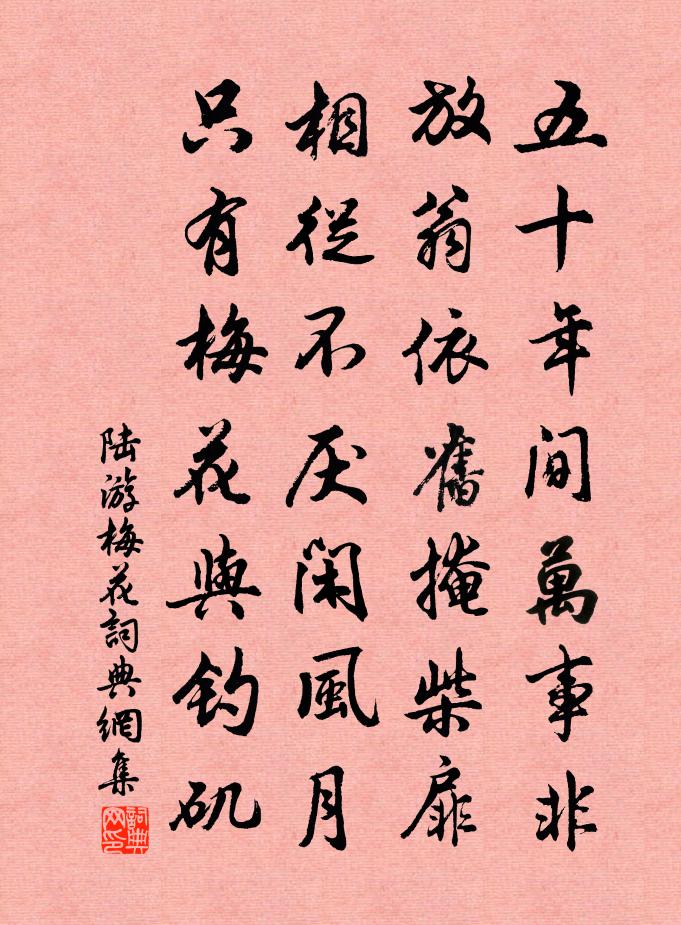 五十年间萬事非
放翁依舊掩柴扉
相從不厌闲風月
只有梅花與钓矶
陆游梅花詞典網集
詞典网印